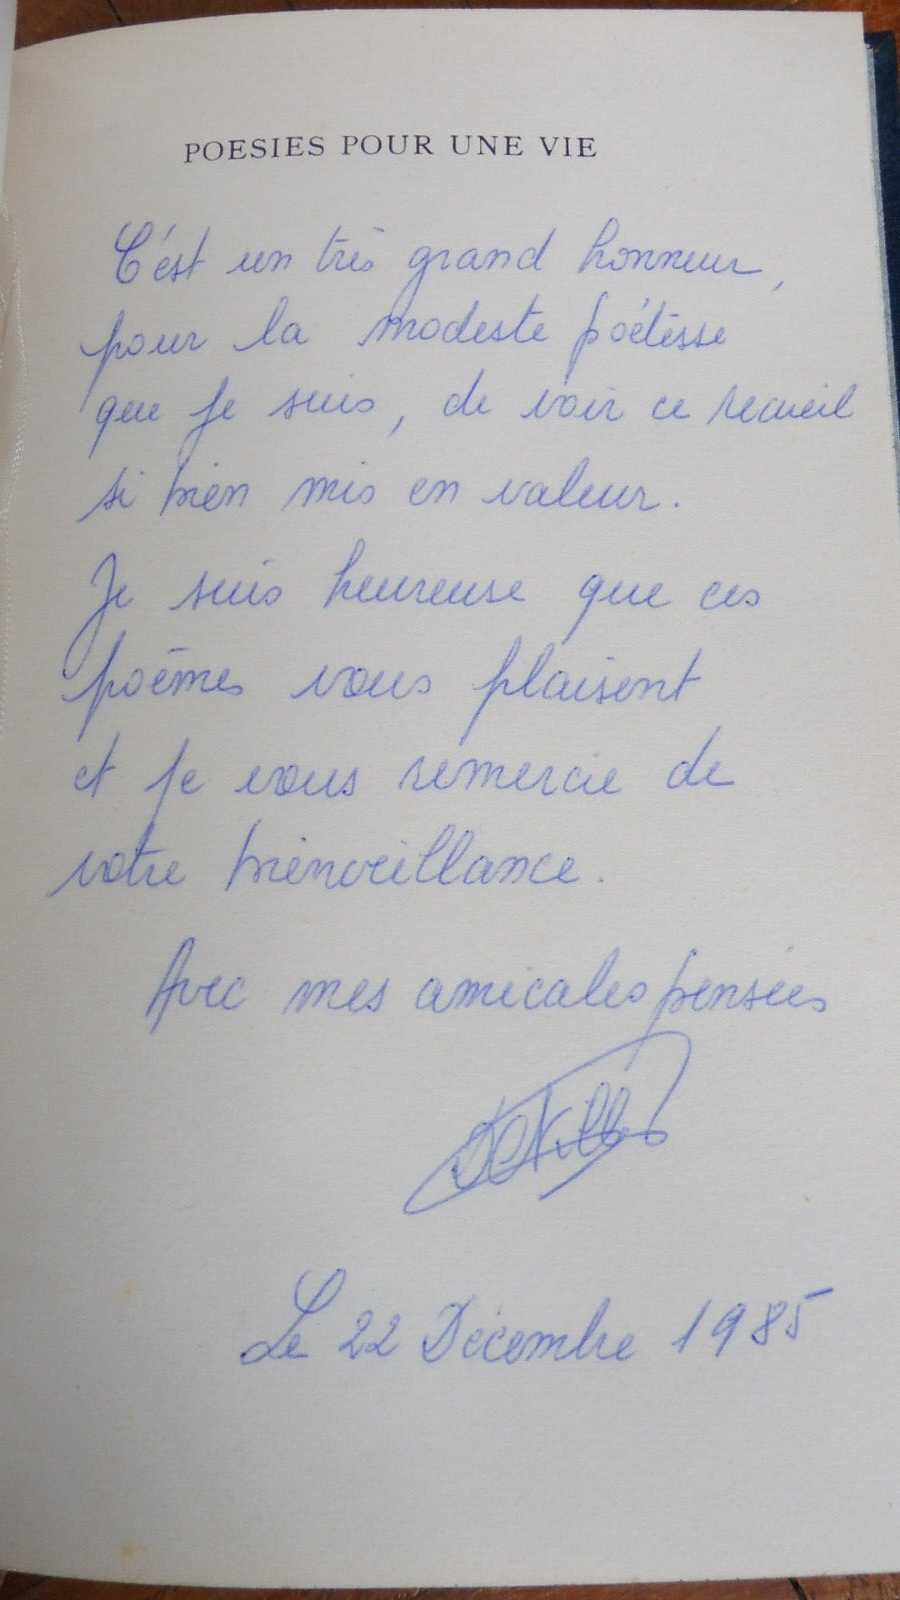 POESIES POUR UNE VIE
C'est un très grand honneur,
pour la modeste poétesse
que je suis, de voir ce recueil
si bien mis en valeur.
Je suis heureuse que ces
poèmes vous plaisent
et je vous remercie de
votre bienveillance.
Avec mes amicales pensées
Le 22 Décembre 1985